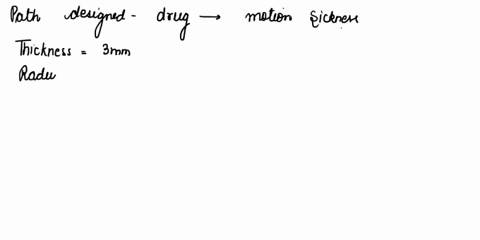 Path designed - drug → motion Sickness
Thickness = 3mm
Radu